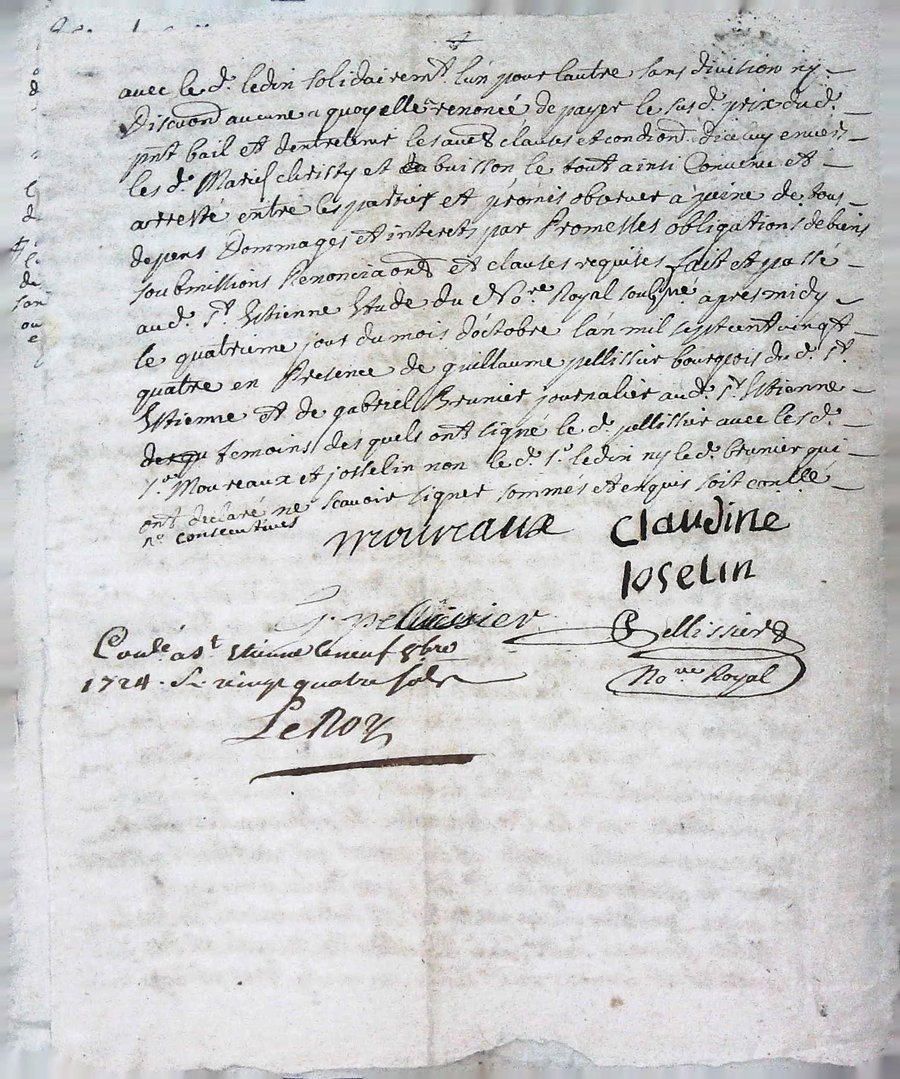 avec le d. ledin solidairemt. lún pour lautre sans division ny
Discuond aucune a quoy elle a renoncé de payer le susd. prix dud.
pnt bail et dentretenir les clauses et condiond. diceluy envers
les d. christy et du buisson le tout ainsi Convenu et
arresté entre les parties et promis observer à peine de tous
depens Dommages et interets par Promesses obligations de biens
soubmissions Renonciaond et clauses requises fait et passé
aud. St. Estienne Etude du Nore. Royal soubsne. apres midy
le quatrieme jour du mois d'octobre lán mil sept cent vingt
quatre en Presence de guillaume pellissier bourgois dud. St.
Estienne et de gabriel Brunier journalier aud. St. Estienne
temoins des quels ont signé le d. pellissier avec lesd.
Moureaux et josselin non le d. Sr. ledin ny le d. brunier qui
ont declaré ne scavoir signer sommés et enquis soit conllé
no. consecutives
moureaux
Claudine
Ioselin
G. pellissier
Pellissier
Conlé a St. Etienne le neuf 8bre
1724. vingt quatre sols
Nore Royal
LeRoy